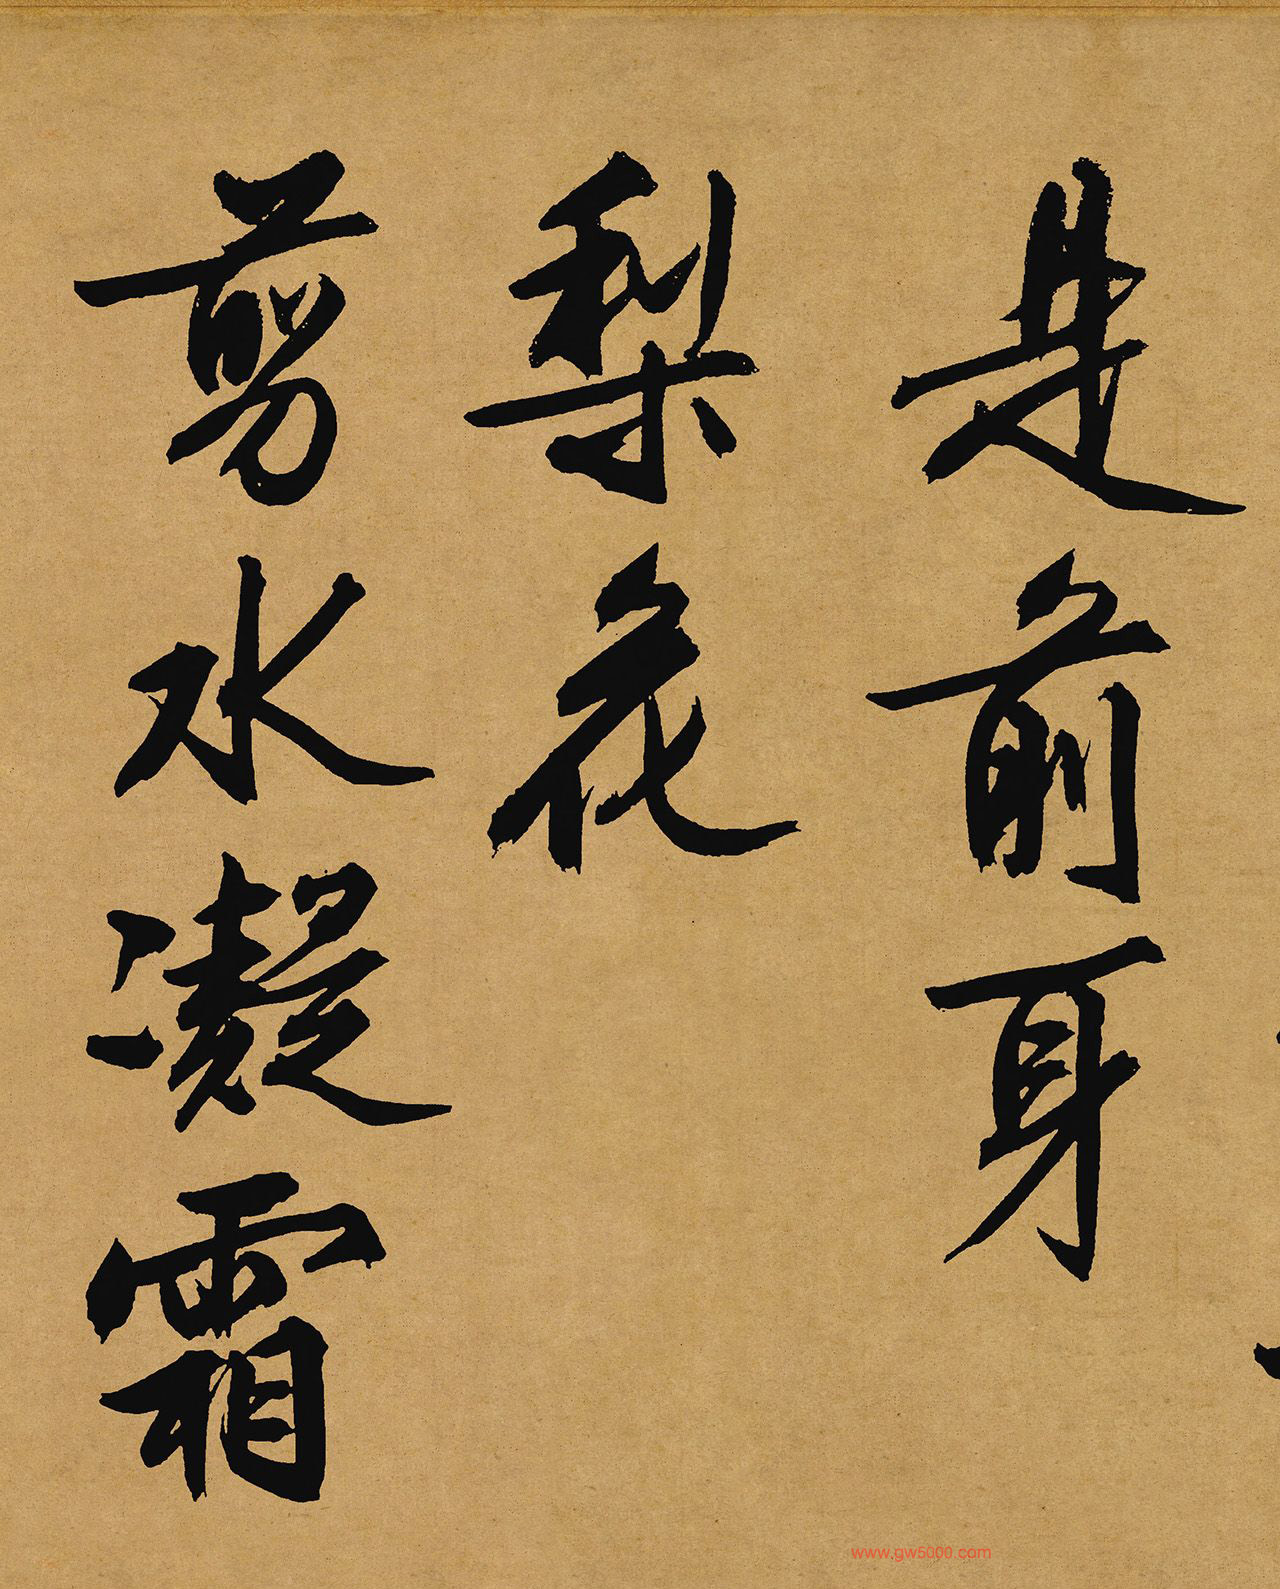 是前身
梨花
剪水凝霜
www.gw5000.com